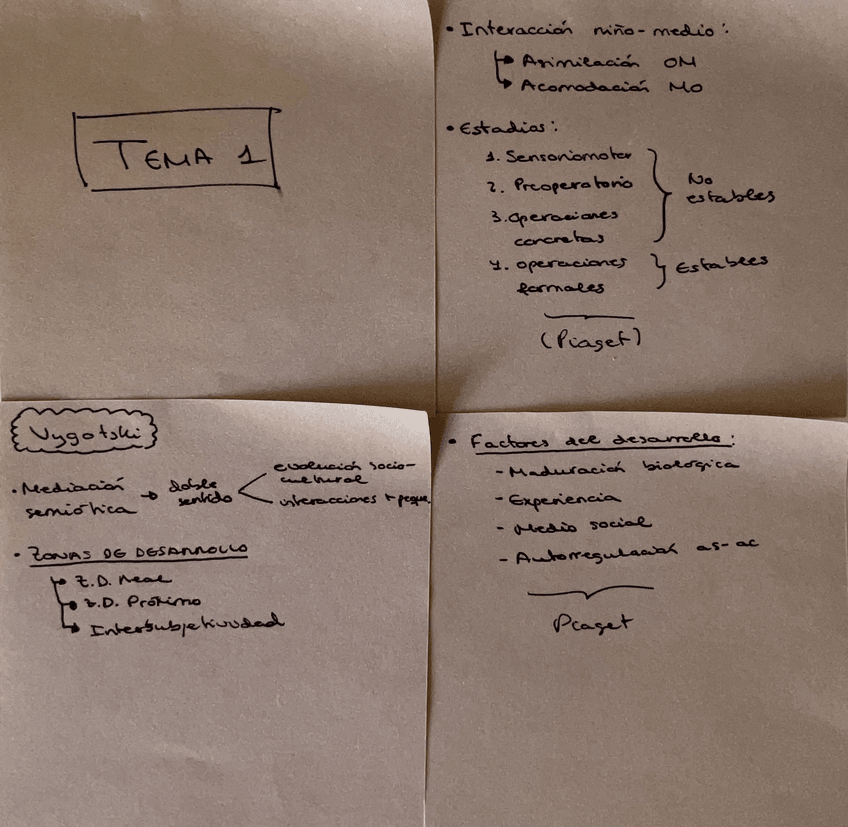 TEMA 1
• Interacción niño-medio:
Asimilación OM
Acomodación MO
• Estadios:
1. Sensoriomotor
2. Preoperatorio
3. Operaciones
concretas
No
estables
4. Operaciones
formales
Estables
(Piaget)
Vygotski
• Mediación
semiótica → doble
sentido
evolución socio-
cultural
interacciones + peque.
• ZONAS DE DESARROLLO
Z.D. Real
Z.D. Próximo
Intersubjetividad
• Factores del desarrollo:
- Maduración biológica
- Experiencia
- Medio social
- Autorregulación as-ac
Piaget